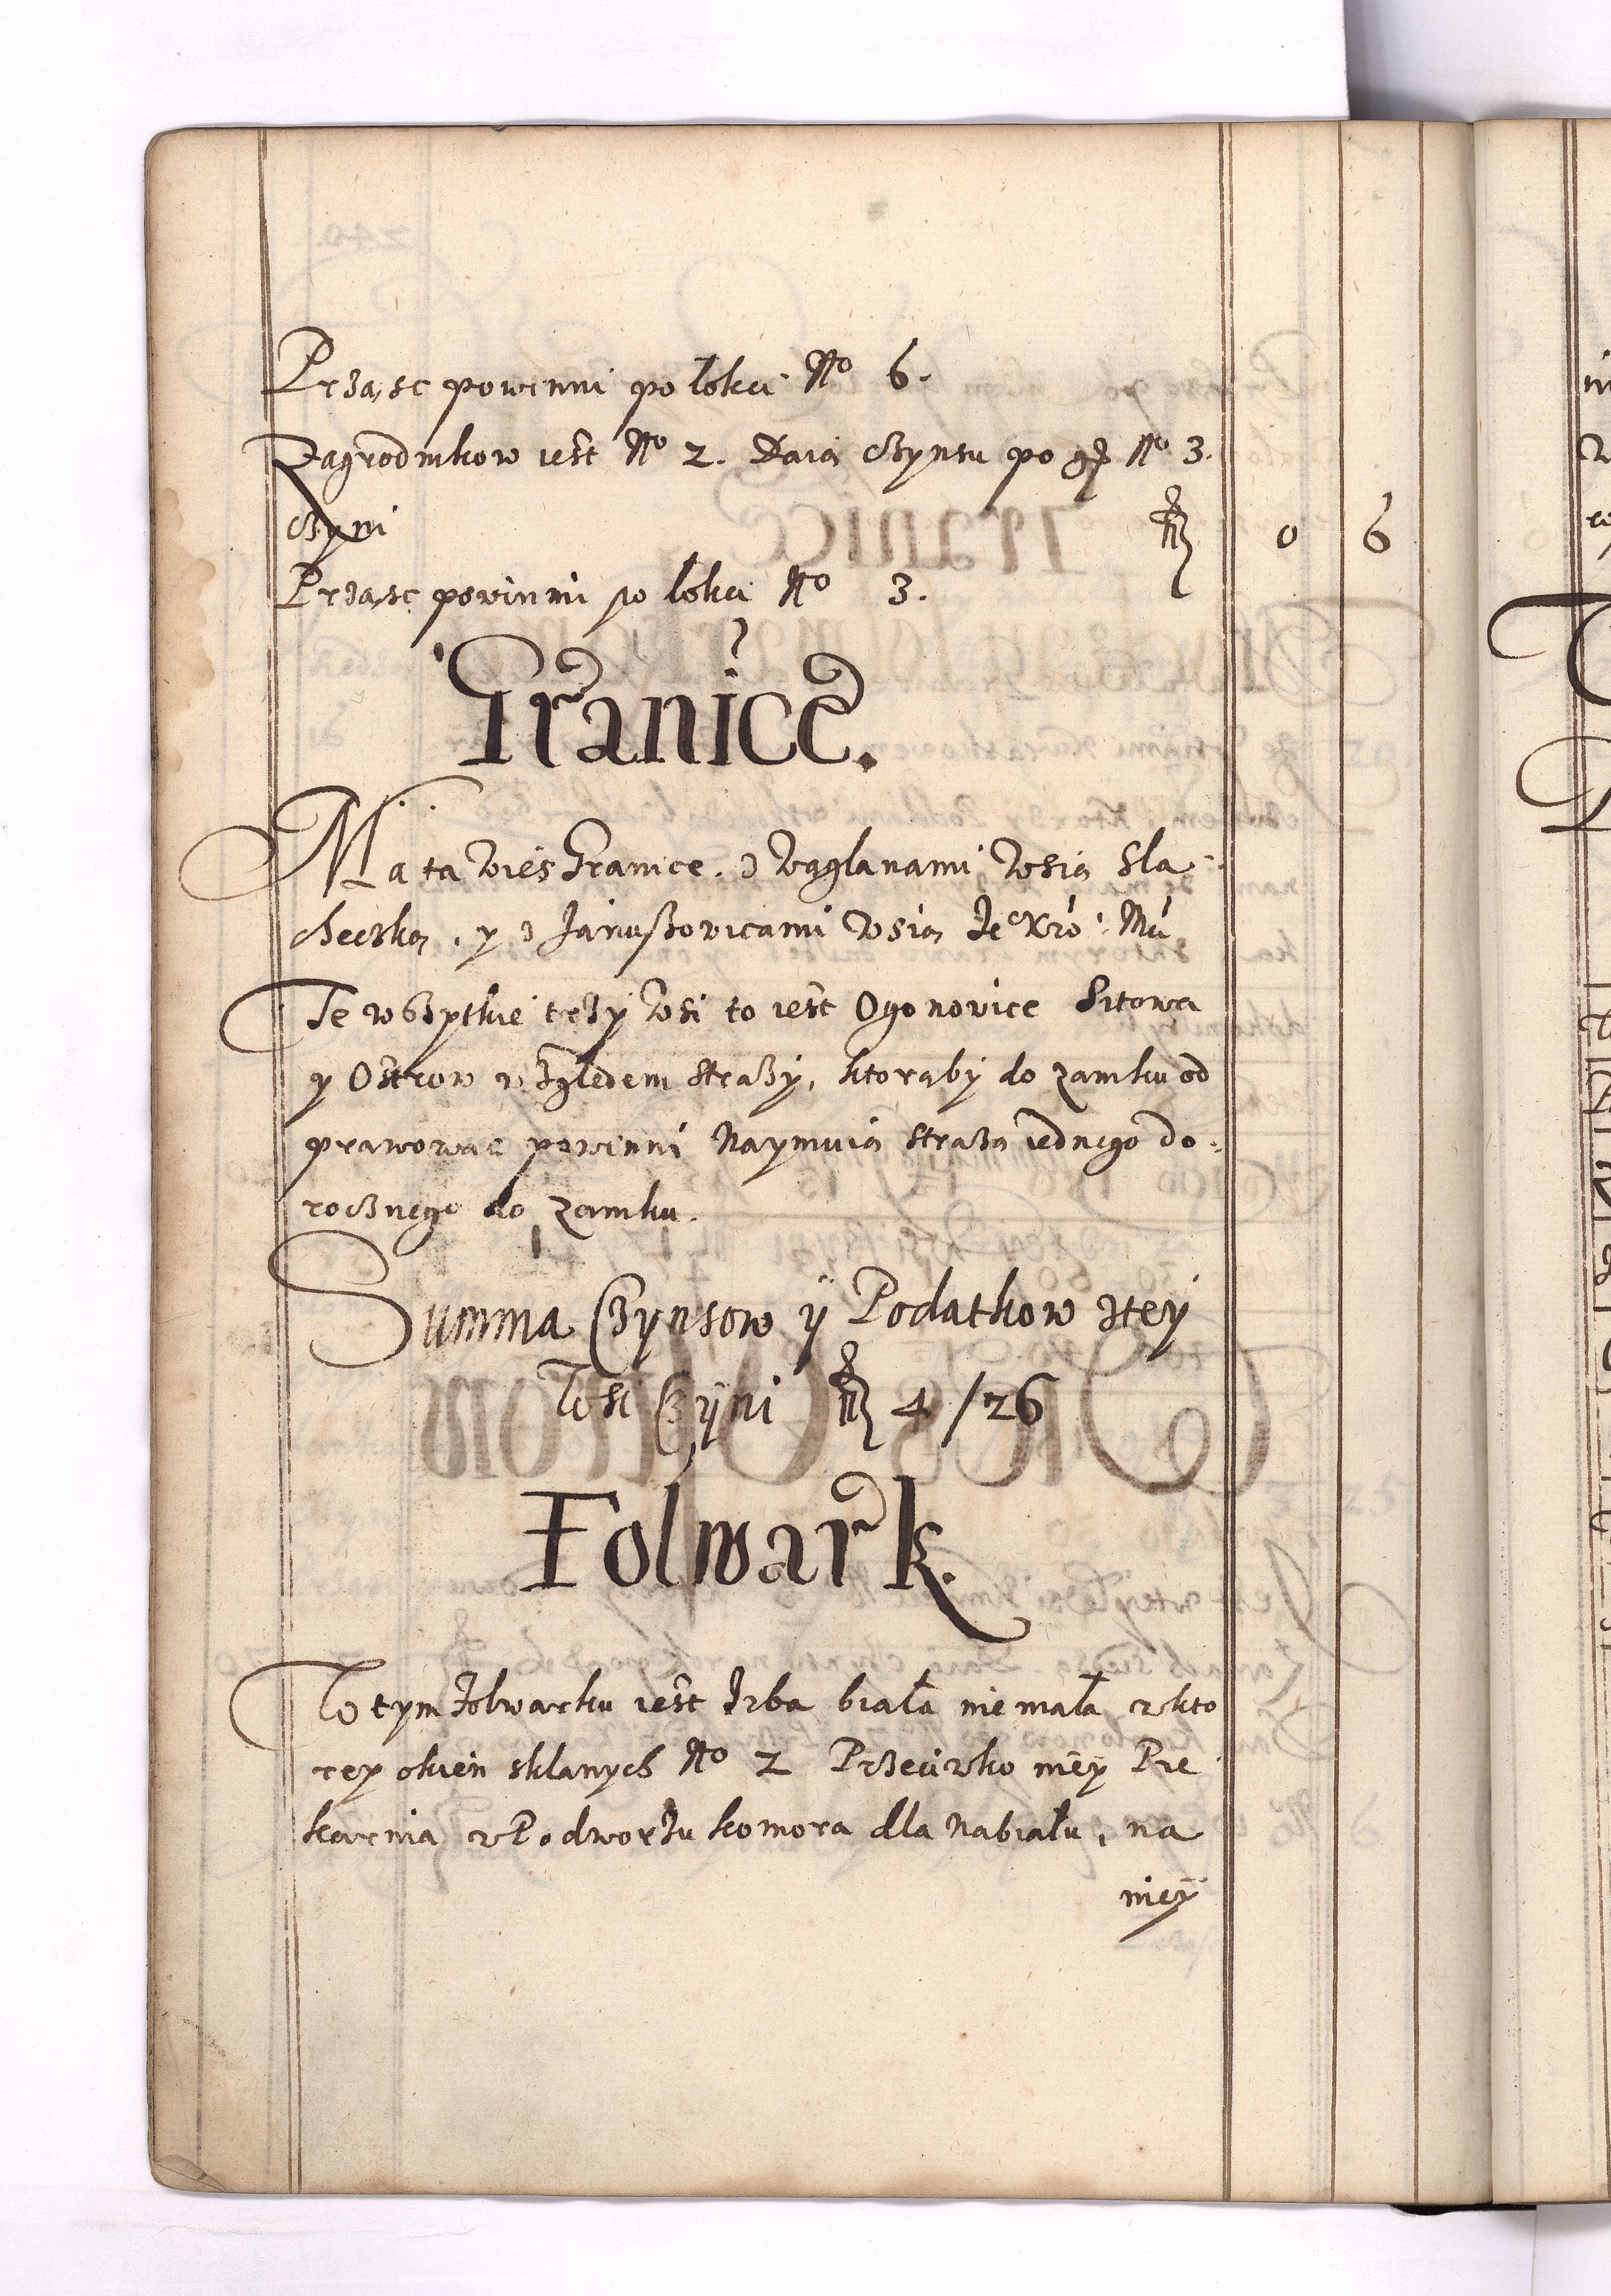 Prząsc powinni po łokci No 6.
Zagrodnikow iest No 2. Daią Czynsu po gr No 3.
Czyni f 0 6
Prząsc powinni po łokci No 3.
Granice.
Ma ta Wies Granice. z Węglanami Wsią Sla
checką, y z Januszowicami Wsią Je Kró: Mci
Te wszytkie trzy Wsi to iest Ogonowice Sitowa
y Ostrow względem straży, ktorąby do zamku od
prawowac powinni Naymuią stroża iednego do
rocznego do zamku.
Summa Czynsow ÿ Podatkow ztey
Wsi Czÿni f 4/26
Folwark.
W tym folwarku iest Izba biała nie mała w kto
rey okien sklanych No 2 Przeciwko niey Pie
karnia w Podworzu komora dla Nabiału, na
niey